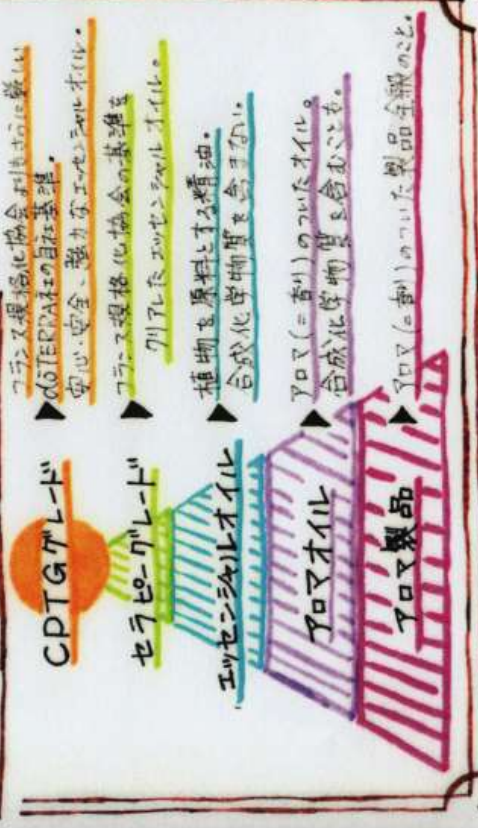 CPTGグレード
フランス規格化協会よりもさらに厳しい
doTERRA社の自社基準。
安心・安全、強力なエッセンシャルオイル。
セラピーグレード
フランス規格化協会の基準を
クリアしたエッセンシャルオイル。
エッセンシャルオイル
植物を原料とする精油。
合成化学物質を含まない。
アロマオイル
アロマ(=香り)のついたオイル。
合成化学物質を含むことも。
アロマ製品
アロマ(=香り)のついた製品全般のこと。